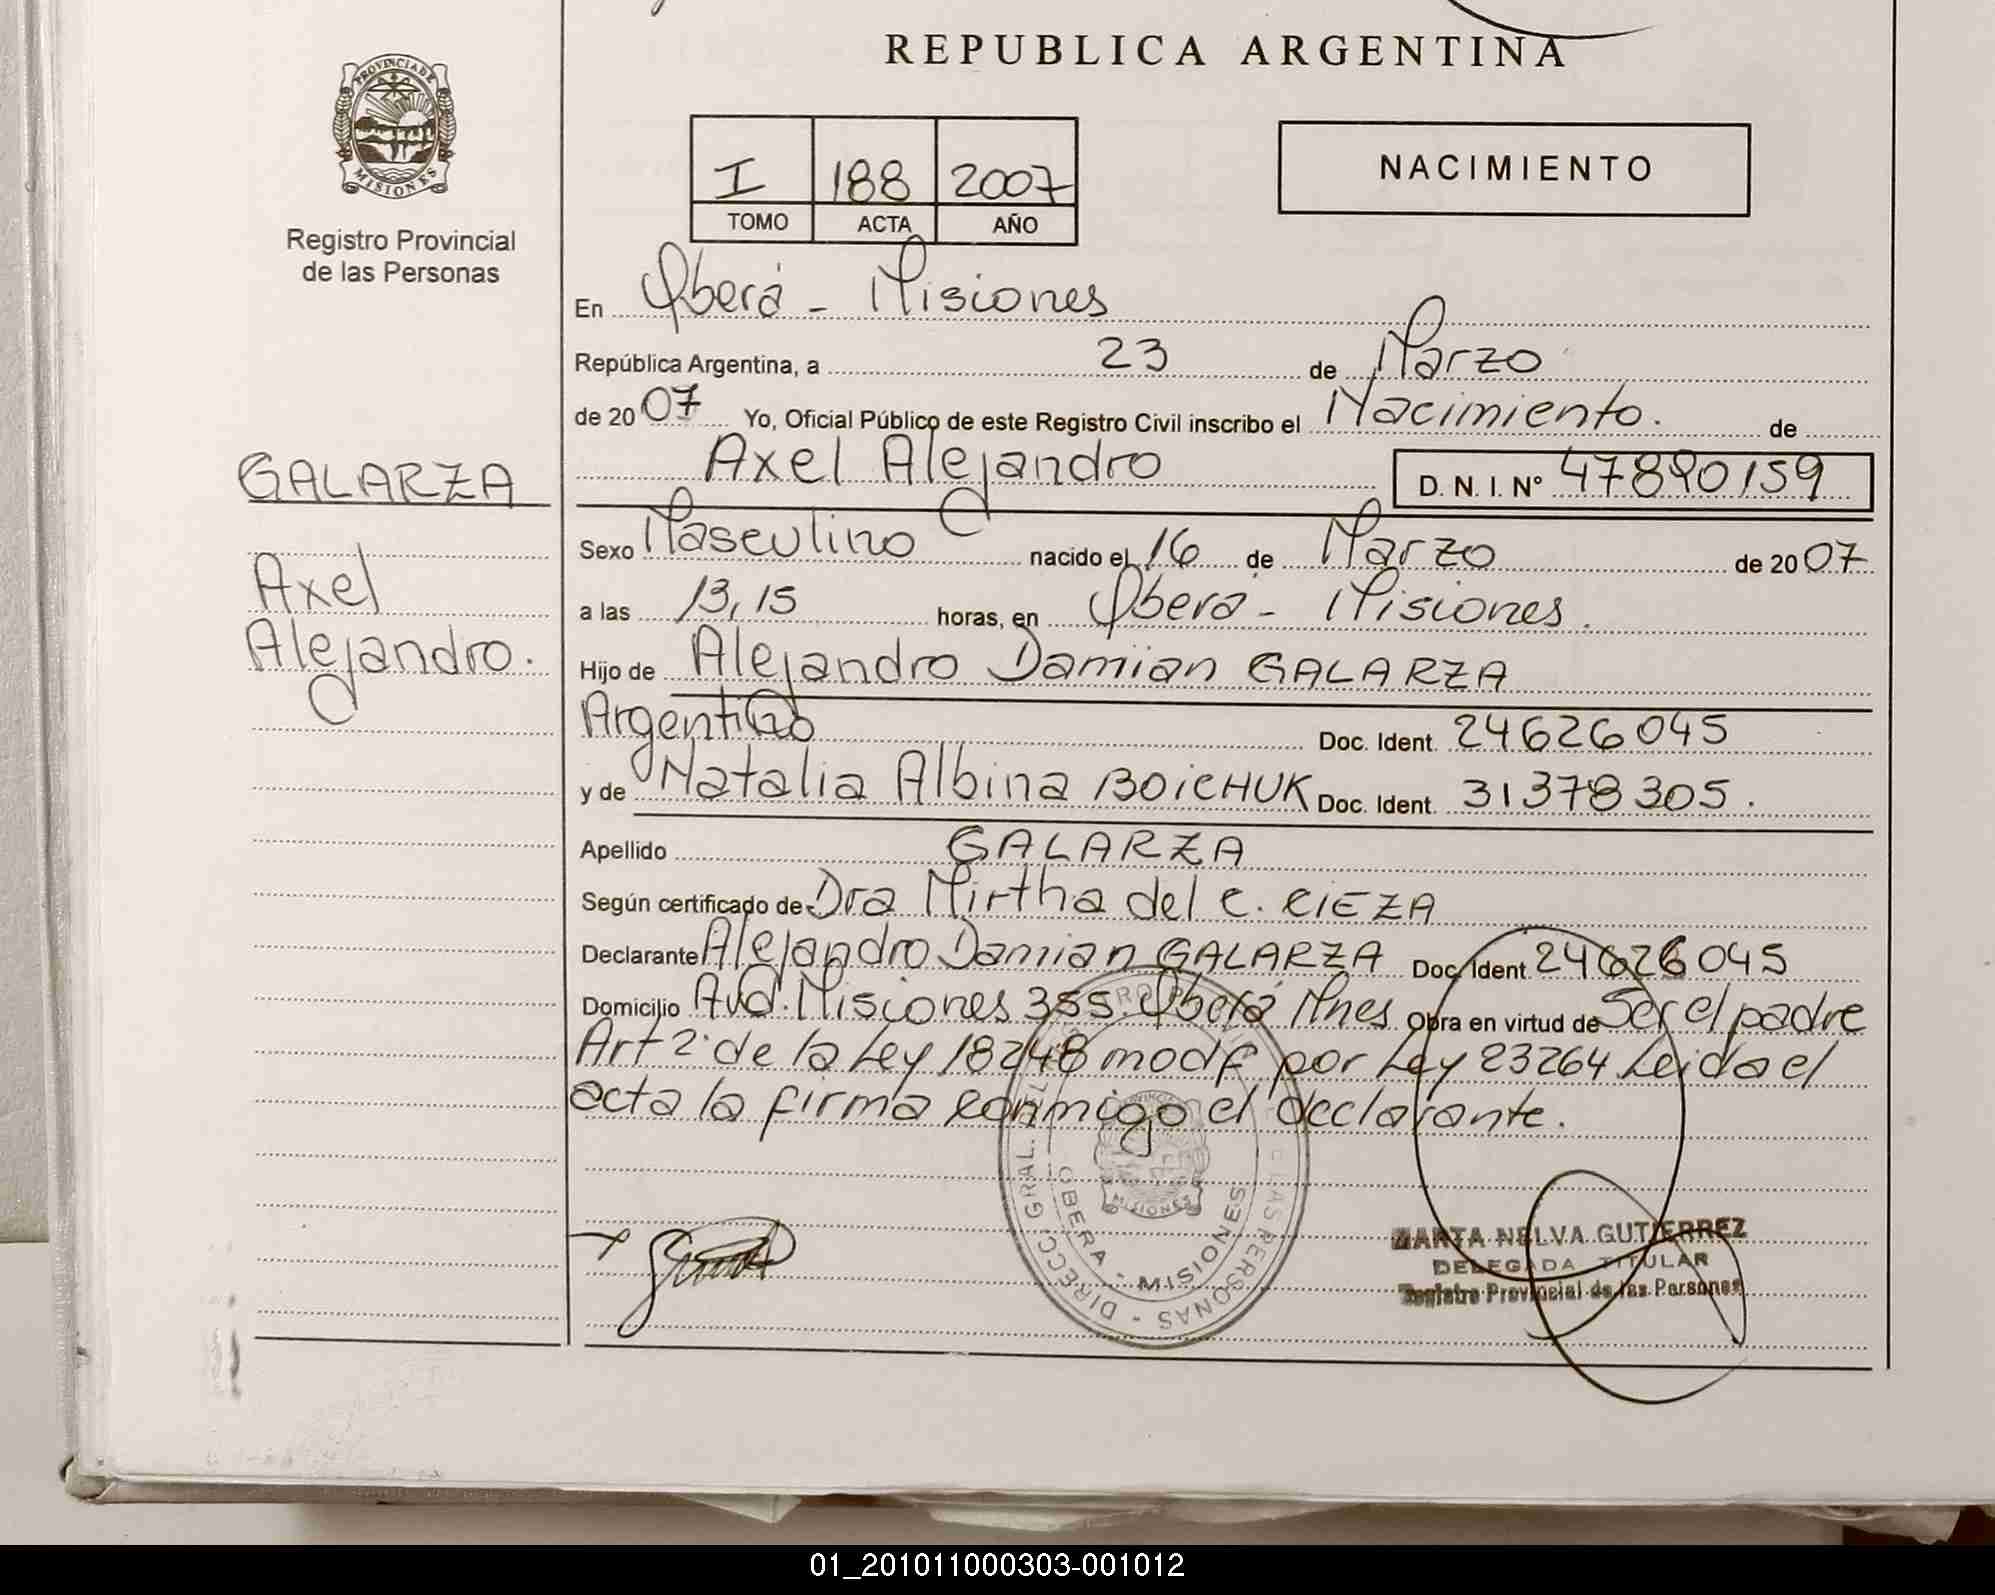 REPUBLICA ARGENTINA
PROVINCIA DE MISIONES
Registro Provincial
de las Personas
I 188 2007
TOMO ACTA AÑO
NACIMIENTO
En Oberá - Misiones
República Argentina, a 23 de Marzo
de 2007 Yo, Oficial Público de este Registro Civil inscribo el Nacimiento. de
Axel Alejandro D. N. I. Nº 47890159
GALARZA
Axel
Alejandro.
Sexo Masculino nacido el 16 de Marzo de 2007
a las 13,15 horas, en Oberá - Misiones.
Hijo de Alejandro Damian GALARZA
Argentino Doc. Ident. 24626045
y de Natalia Albina BOICHUK Doc. Ident. 31378305.
Apellido GALARZA
Según certificado de Dra Mirtha del C. CIEZA
Declarante Alejandro Damian GALARZA Doc. Ident. 24626045
Domicilio Avd. Misiones 355. Oberá Mnes Obra en virtud de Ser el padre
Art 2º de la Ley 18248 modf por Ley 23264 Leida el
acta la firma conmigo el declarante.
DIRECC. GRAL. DE LAS PERSONAS
OBERA - MISIONES
MARTA NELVA GUTIERREZ
DELEGADA TITULAR
Registro Provincial de las Personas
01_201011000303-001012